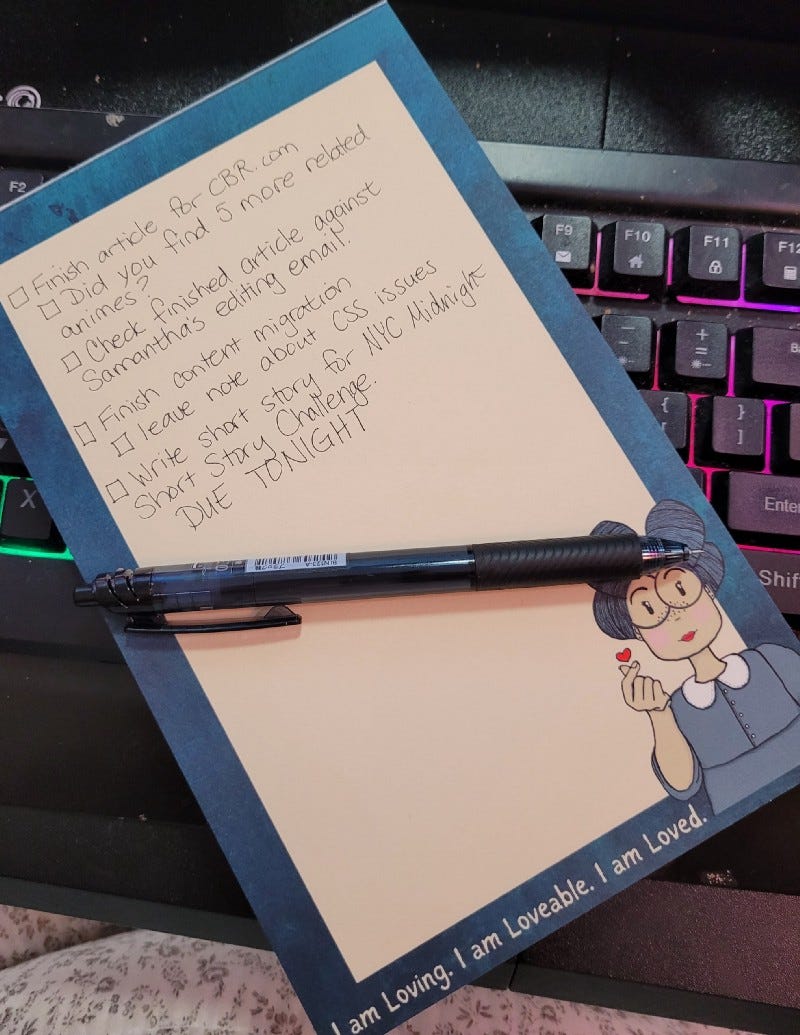 ☐ Finish article for CBR.com
☐ Did you find 5 more related
animes?
☐ Check finished article against
Samantha's editing email.
☐ Finish content migration
☐ leave note about CSS issues
☐ Write short story for NYC Midnight
Short Story Challenge.
DUE TONIGHT
I am Loving. I am Loveable. I am Loved.
F2
F9
F10
F11
F12
X
Enter
Shift